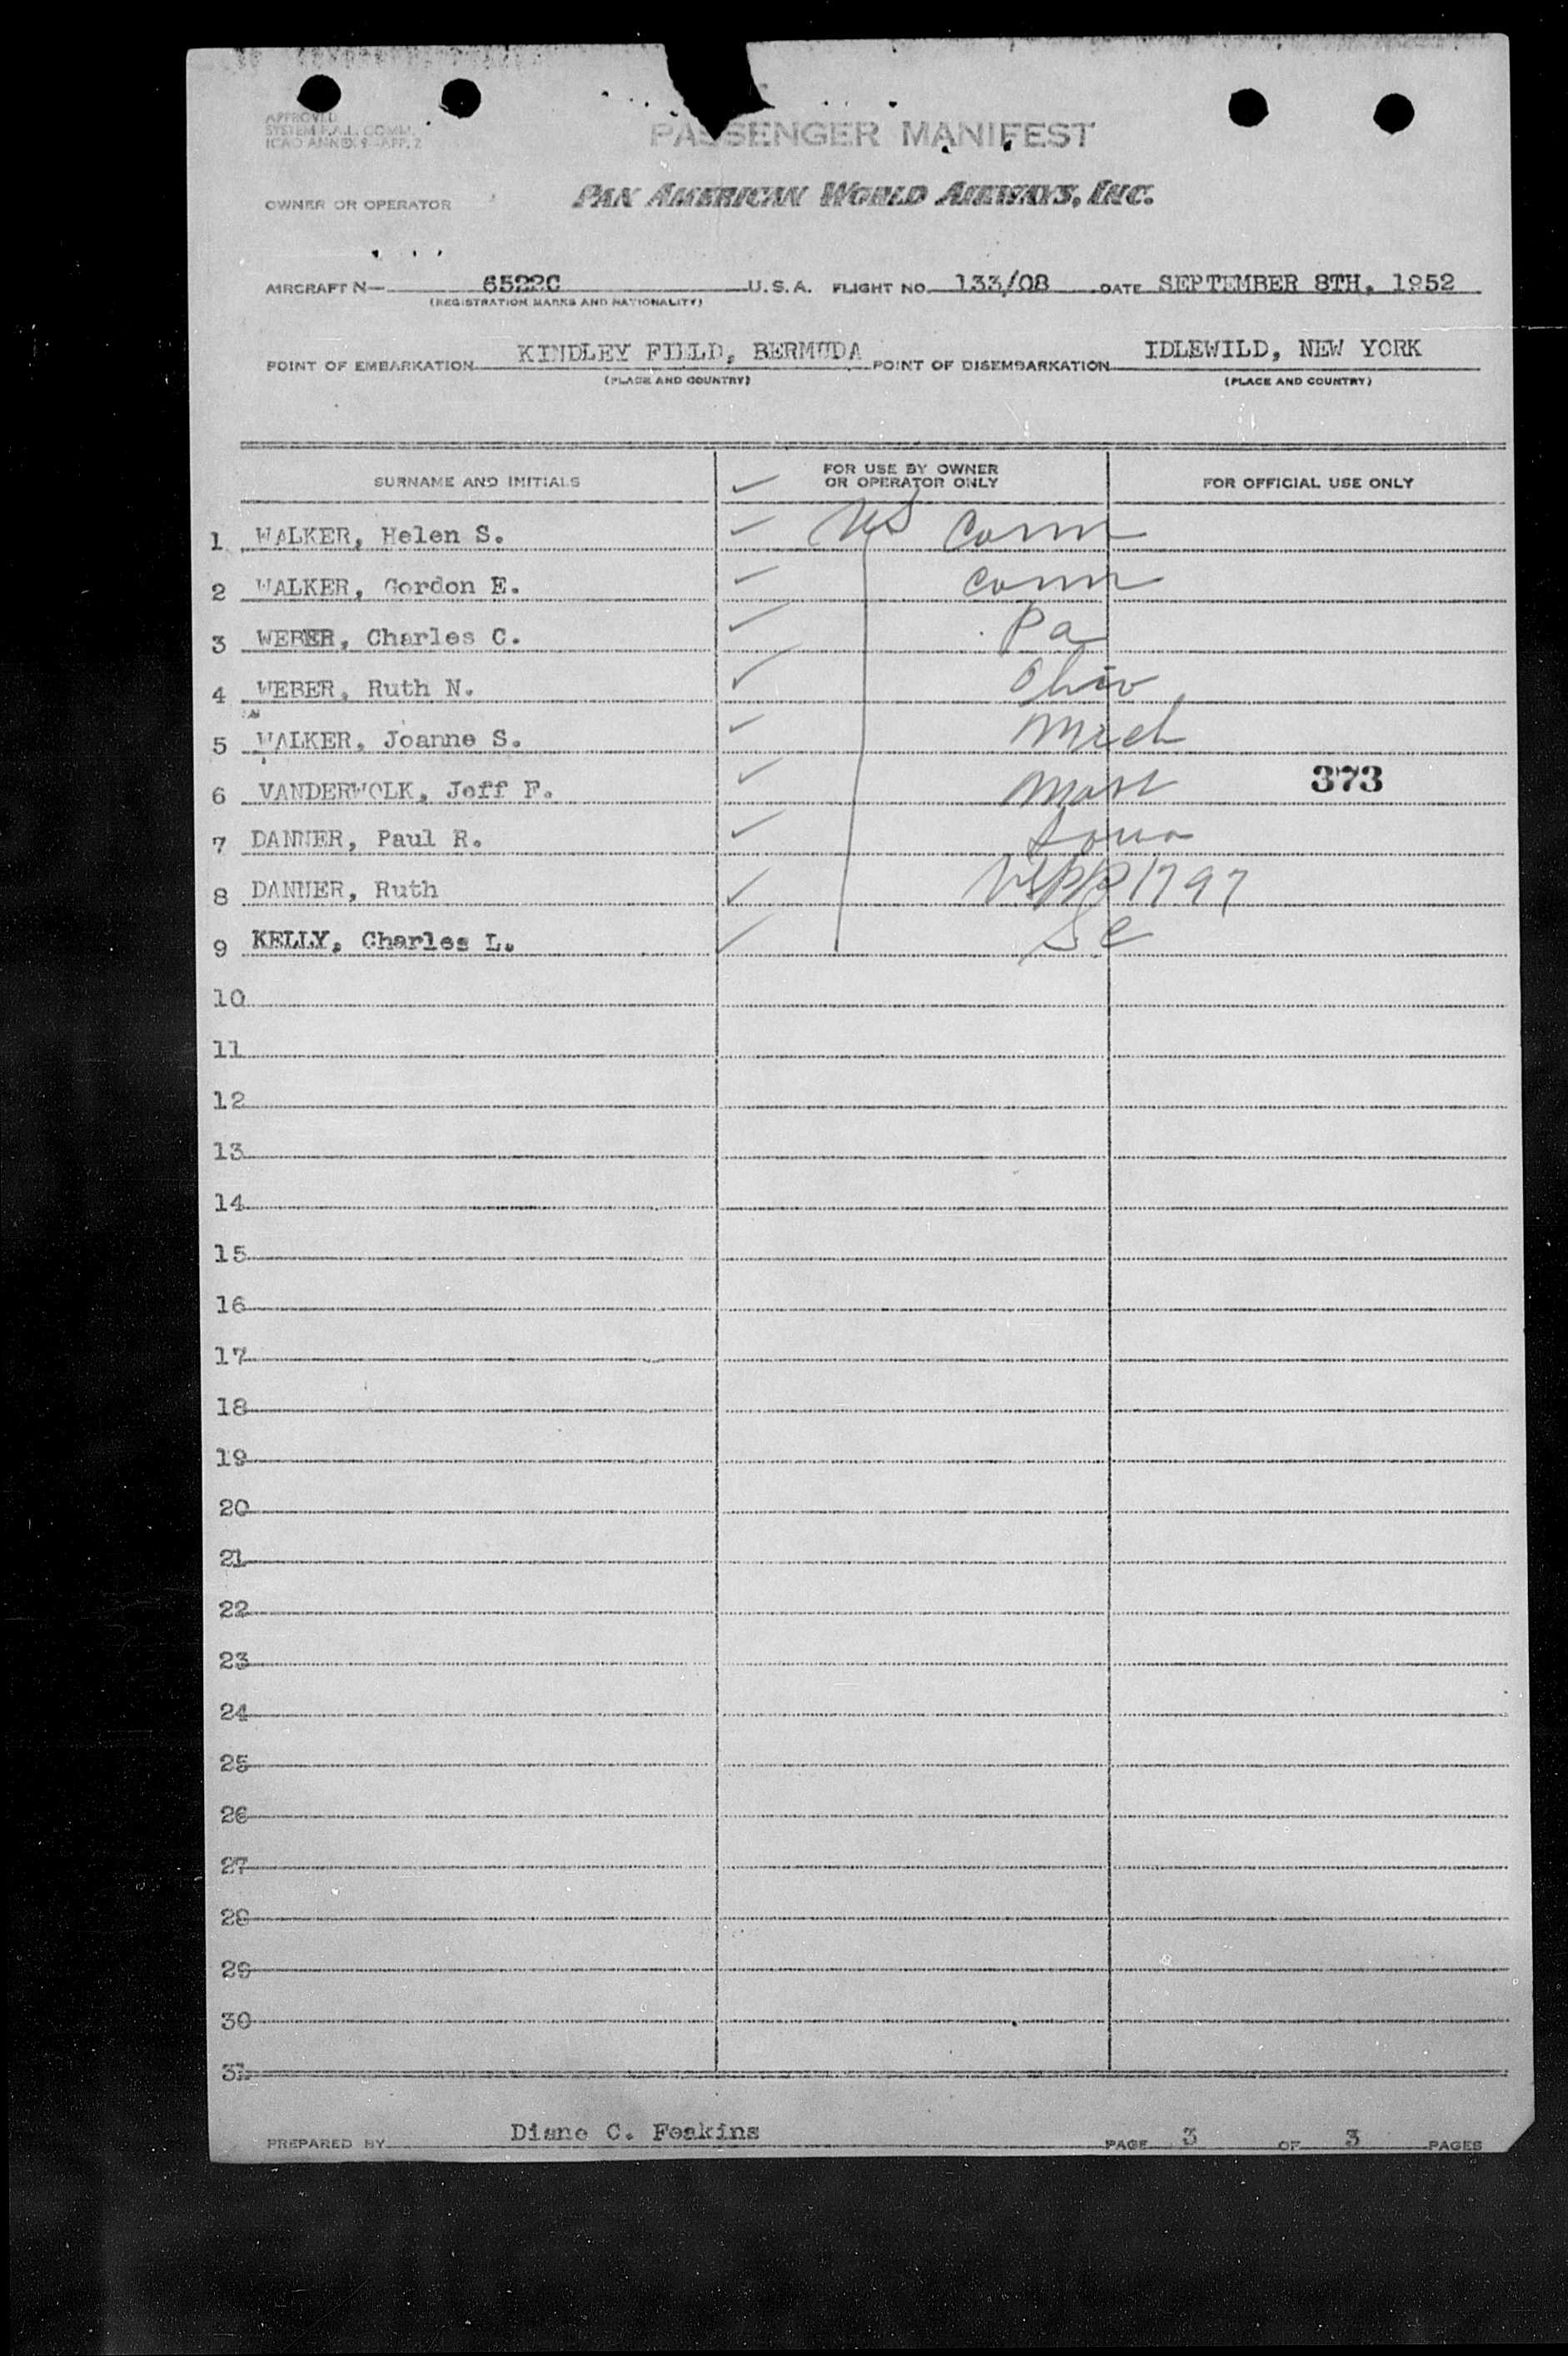 APPROVED
SYSTEM F.A.L. COMM.
ICAO ANNEX 9-APP. 2
PASSENGER MANIFEST
OWNER OR OPERATOR PAN AMERICAN WORLD AIRWAYS, INC.
AIRCRAFT N- 6522C U.S.A. FLIGHT NO. 133/08 DATE SEPTEMBER 8TH, 1952
(REGISTRATION MARKS AND NATIONALITY)
POINT OF EMBARKATION KINDLEY FIELD, BERMUDA POINT OF DISEMBARKATION IDLEWILD, NEW YORK
(PLACE AND COUNTRY) (PLACE AND COUNTRY)
SURNAME AND INITIALS FOR USE BY OWNER OR OPERATOR ONLY FOR OFFICIAL USE ONLY
1 WALKER, Helen S. US Conn
2 WALKER, Gordon E. Conn
3 WEBER, Charles C. Pa
4 WEBER, Ruth N. Ohio
5 WALKER, Joanne S. Mich
6 VANDERWOLK, Jeff F. Mass 373
7 DANNER, Paul R. Iowa
8 DANNER, Ruth USPP 1797
9 KELLY, Charles L. SC
10
11
12
13
14
15
16
17
18
19
20
21
22
23
24
25
26
27
28
29
30
31
PREPARED BY Diane C. Feakins PAGE 3 OF 3 PAGES